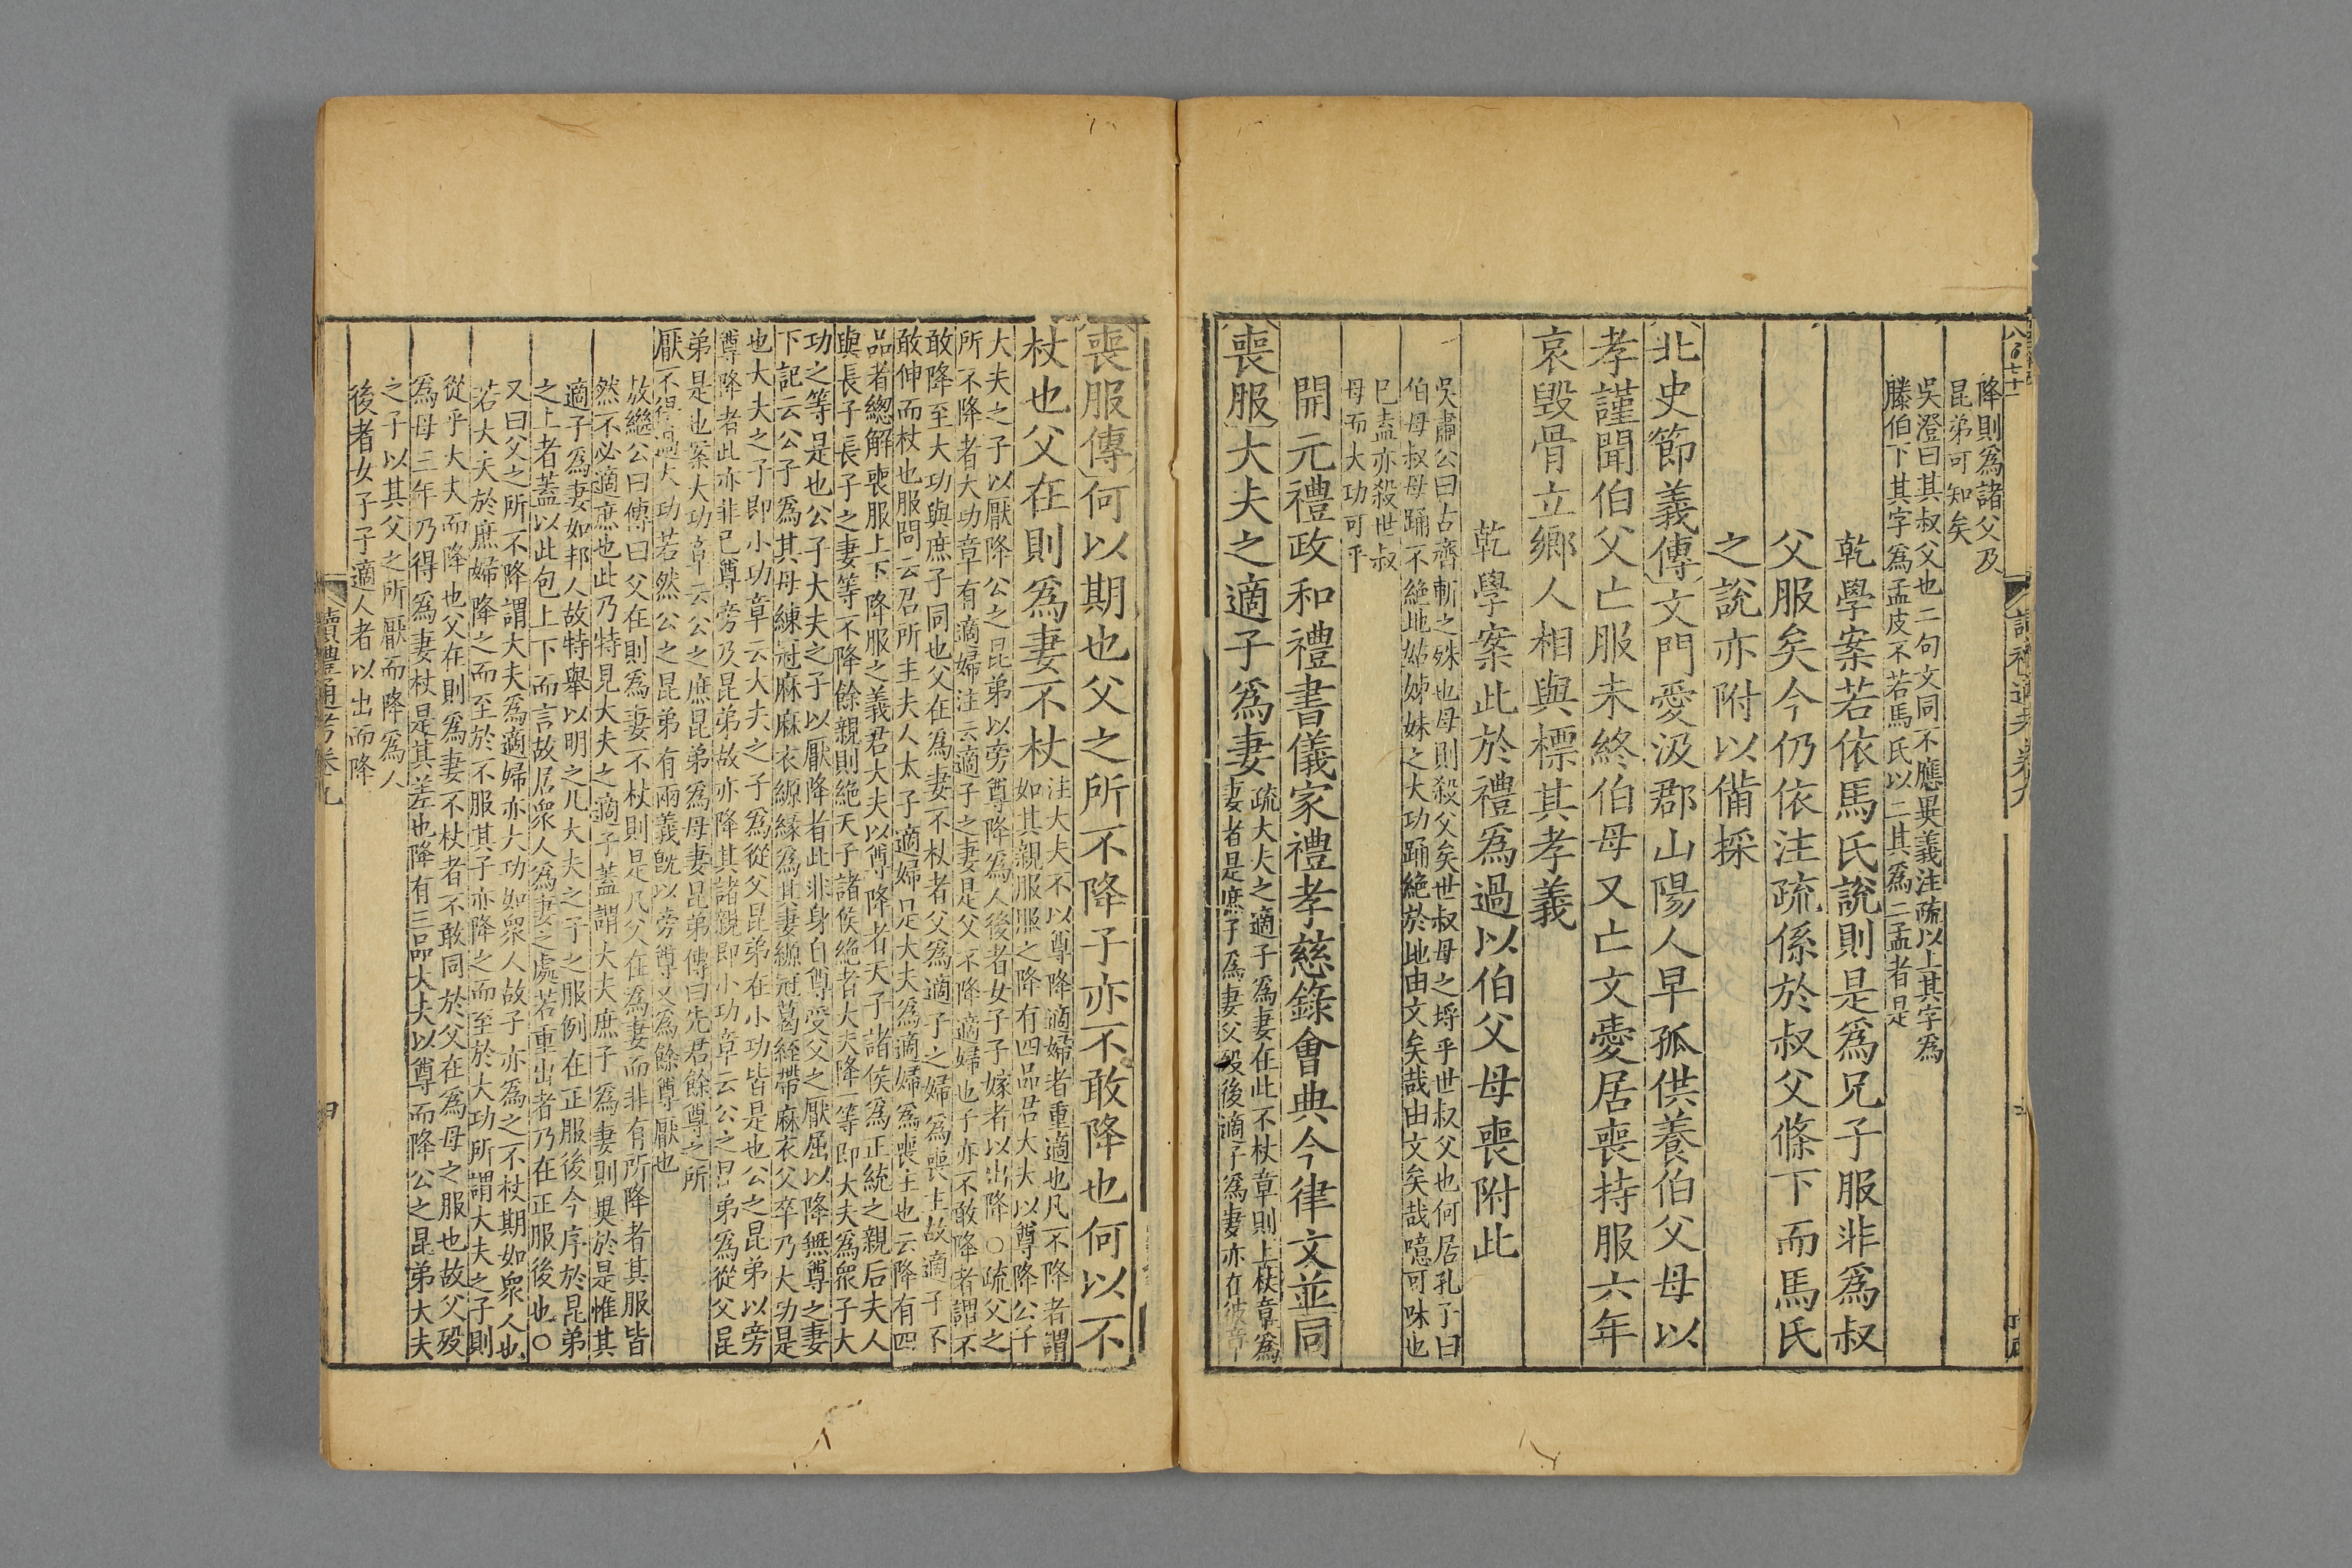 降則爲諸父及
昆弟可知矣
吳澄曰其叔父也二句文同不應異義注疏以上其字爲
滕伯下其字爲孟皮不若馬氏以二其爲二孟者是
乾學案若依馬氏說則是爲兄子服非爲叔
父服矣今仍依注疏係於叔父條下而馬氏
之說亦附以備採
北史節義傳文門愛汲郡山陽人早孤供養伯父母以
孝謹聞伯父亡服未終伯母又亡文愛居喪持服六年
哀毀骨立鄉人相與標其孝義
乾學案此於禮爲過以伯父母喪附此
吳肅公曰古齊斬之殊也母則殺父矣世叔母之埓乎世叔父也何居孔子曰
伯母叔母踊不絕地姑姊妹之大功踊絕於地由文矣哉由文矣哉噫可味也
已盍亦殺世叔
母而大功可乎
開元禮政和禮書儀家禮孝慈錄會典今律文並同
喪服大夫之適子爲妻
疏大夫之適子爲妻在此不杖章則上杖章爲
妻者是庶子爲妻父殁後適子爲妻亦在彼章
喪服傳何以期也父之所不降子亦不敢降也何以不
杖也父在則爲妻不杖
注大夫不以尊降適婦者重適也凡不降者謂
如其親服服之降有四品君大夫以尊降公子
大夫之子以厭降公之昆弟以旁尊降爲人後者女子子嫁者以出降○疏父之
所不降者大功章有適婦注云適子之妻是父不降適婦也子亦不敢降者謂不
敢降至大功與庶子同也父在爲妻不杖者父爲適子之婦爲喪主故適子不
敢伸而杖也服問云君所主夫人太子適婦是大夫爲適婦爲喪主也云降有四
品者總解喪服上下降服之義君大夫以尊降者天子諸侯爲正統之親后夫人
與長子長子之妻等不降餘親則絕天子諸侯絕者大夫降一等即大夫爲衆子大
功之等是也公子大夫之子以厭降者此非身自尊受父之厭屈以降無尊之妻
下記云公子爲其母練冠麻麻衣縓緣爲其妻縓冠葛絰帶麻衣父卒乃大功是
也大夫之子即小功章云大夫之子爲從父昆弟在小功皆是也公之昆弟以旁
尊降者此亦非己尊旁及昆弟故亦降其諸親即小功章云公之昆弟爲從父昆
弟是也案大功章云公之庶昆弟爲母妻昆弟傳曰先君餘尊之所
厭不得過大功若然公之昆弟有兩義旣以旁尊又爲餘尊厭也
敖繼公曰傳曰父在則爲妻不杖則是凡父在爲妻而非有所降者其服皆
然不必適庶也此乃特見大夫之適子蓋謂大夫庶子爲妻則異於是惟其
適子爲妻如邦人故特舉以明之凡大夫之子之服例在正服後今序於昆弟
之上者蓋以此包上下而言故居衆人爲妻之處若重出者乃在正服後也○
又曰父之所不降謂大夫爲適婦亦大功如衆人故子亦爲之不杖期如衆人也
若大夫於庶婦降之而至於不服其子亦降之而至於大功所謂大夫之子則
從乎大夫而降也父在則爲妻不杖者不敢同於父在爲母之服也故父殁
爲母三年乃得爲妻杖是其差也降有三品大夫以尊而降公之昆弟大夫
之子以其父之所厭而降爲人
後者女子子適人者以出而降
讀禮通考卷九